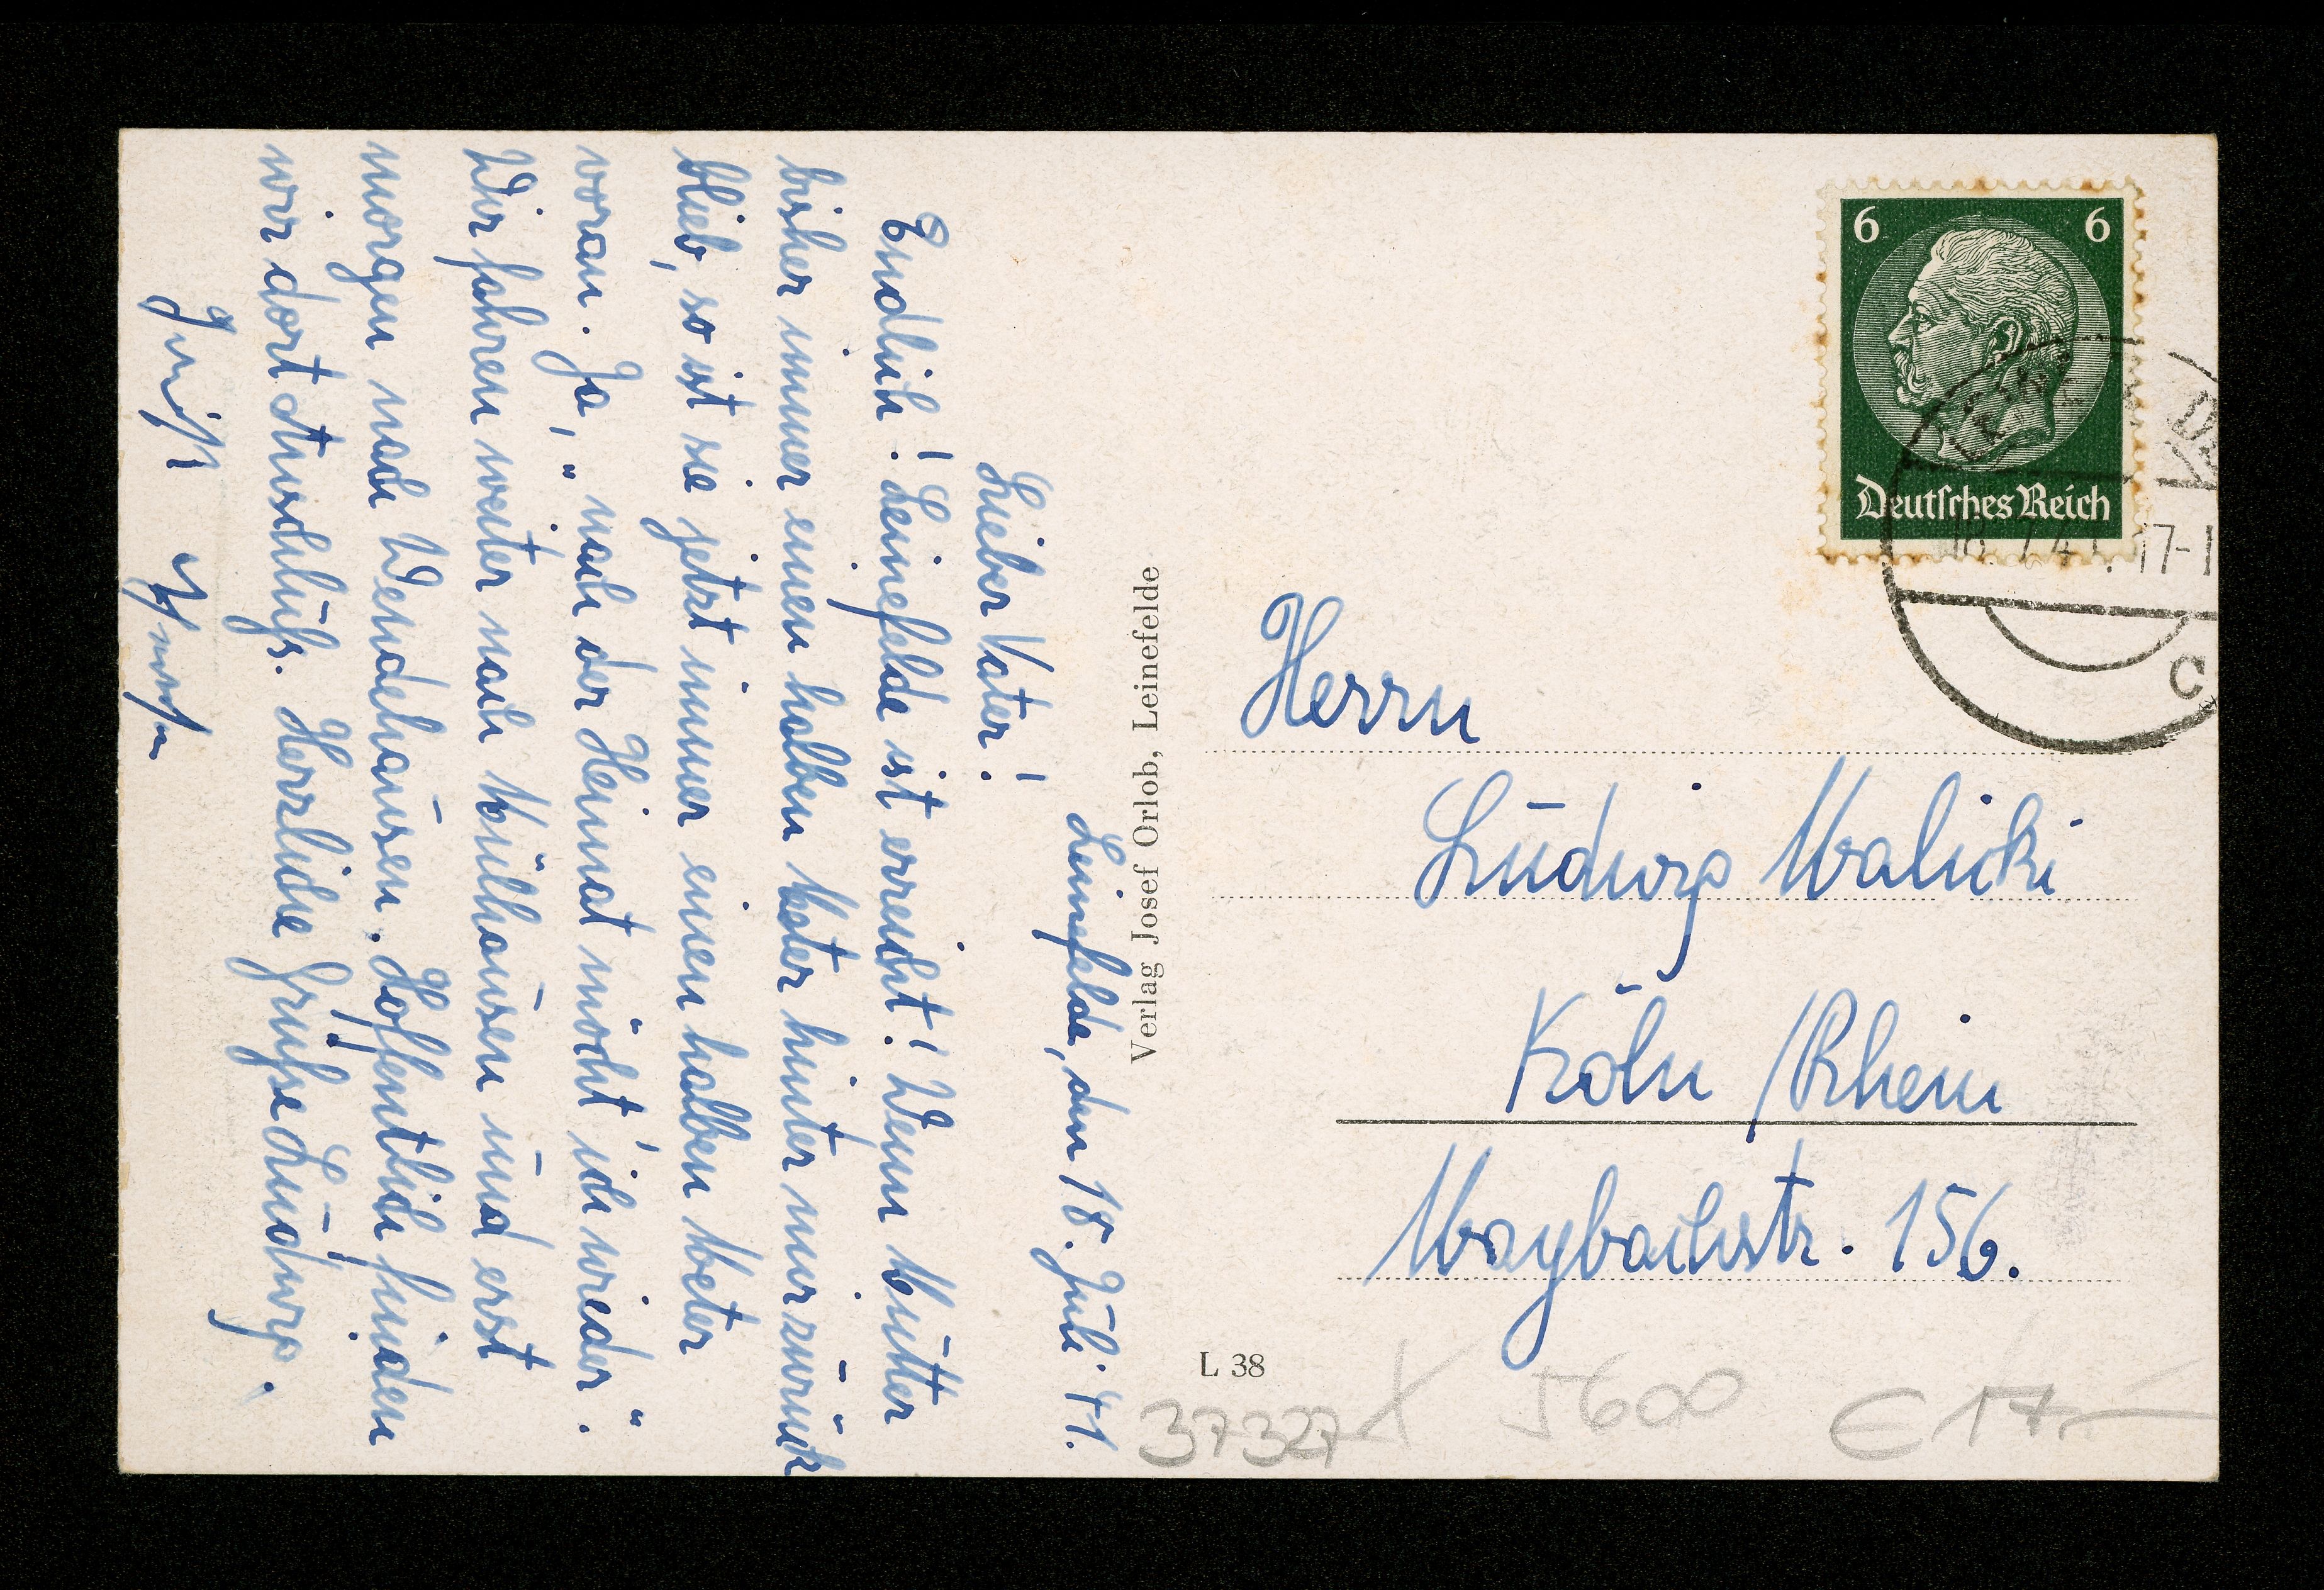 Leinefelde, den 18. Juli 41.
Lieber Vater!
Endlich! Leinefelde ist erreicht! Wenn Mutter
bisher immer einen halben Meter hinter mir zurück
blieb, so ist sie jetzt immer einen halben Meter
voran. Ja, „nach der Heimat möcht' ich wieder."
Wir fahren weiter nach Mülhausen und erst
morgen nach Wendehausen. Hoffentlich finden
wir dort Anschluß. Herzliche Grüße Ludwig.
Gruß
Verlag Josef Orlob, Leinefelde
L 38
6 6
Deutsches Reich
18.7.41.17-1
c
Herrn
Ludwig Malicki
Köln/Rhein
Maybachstr. 156.
37327
5600
€ 17,-